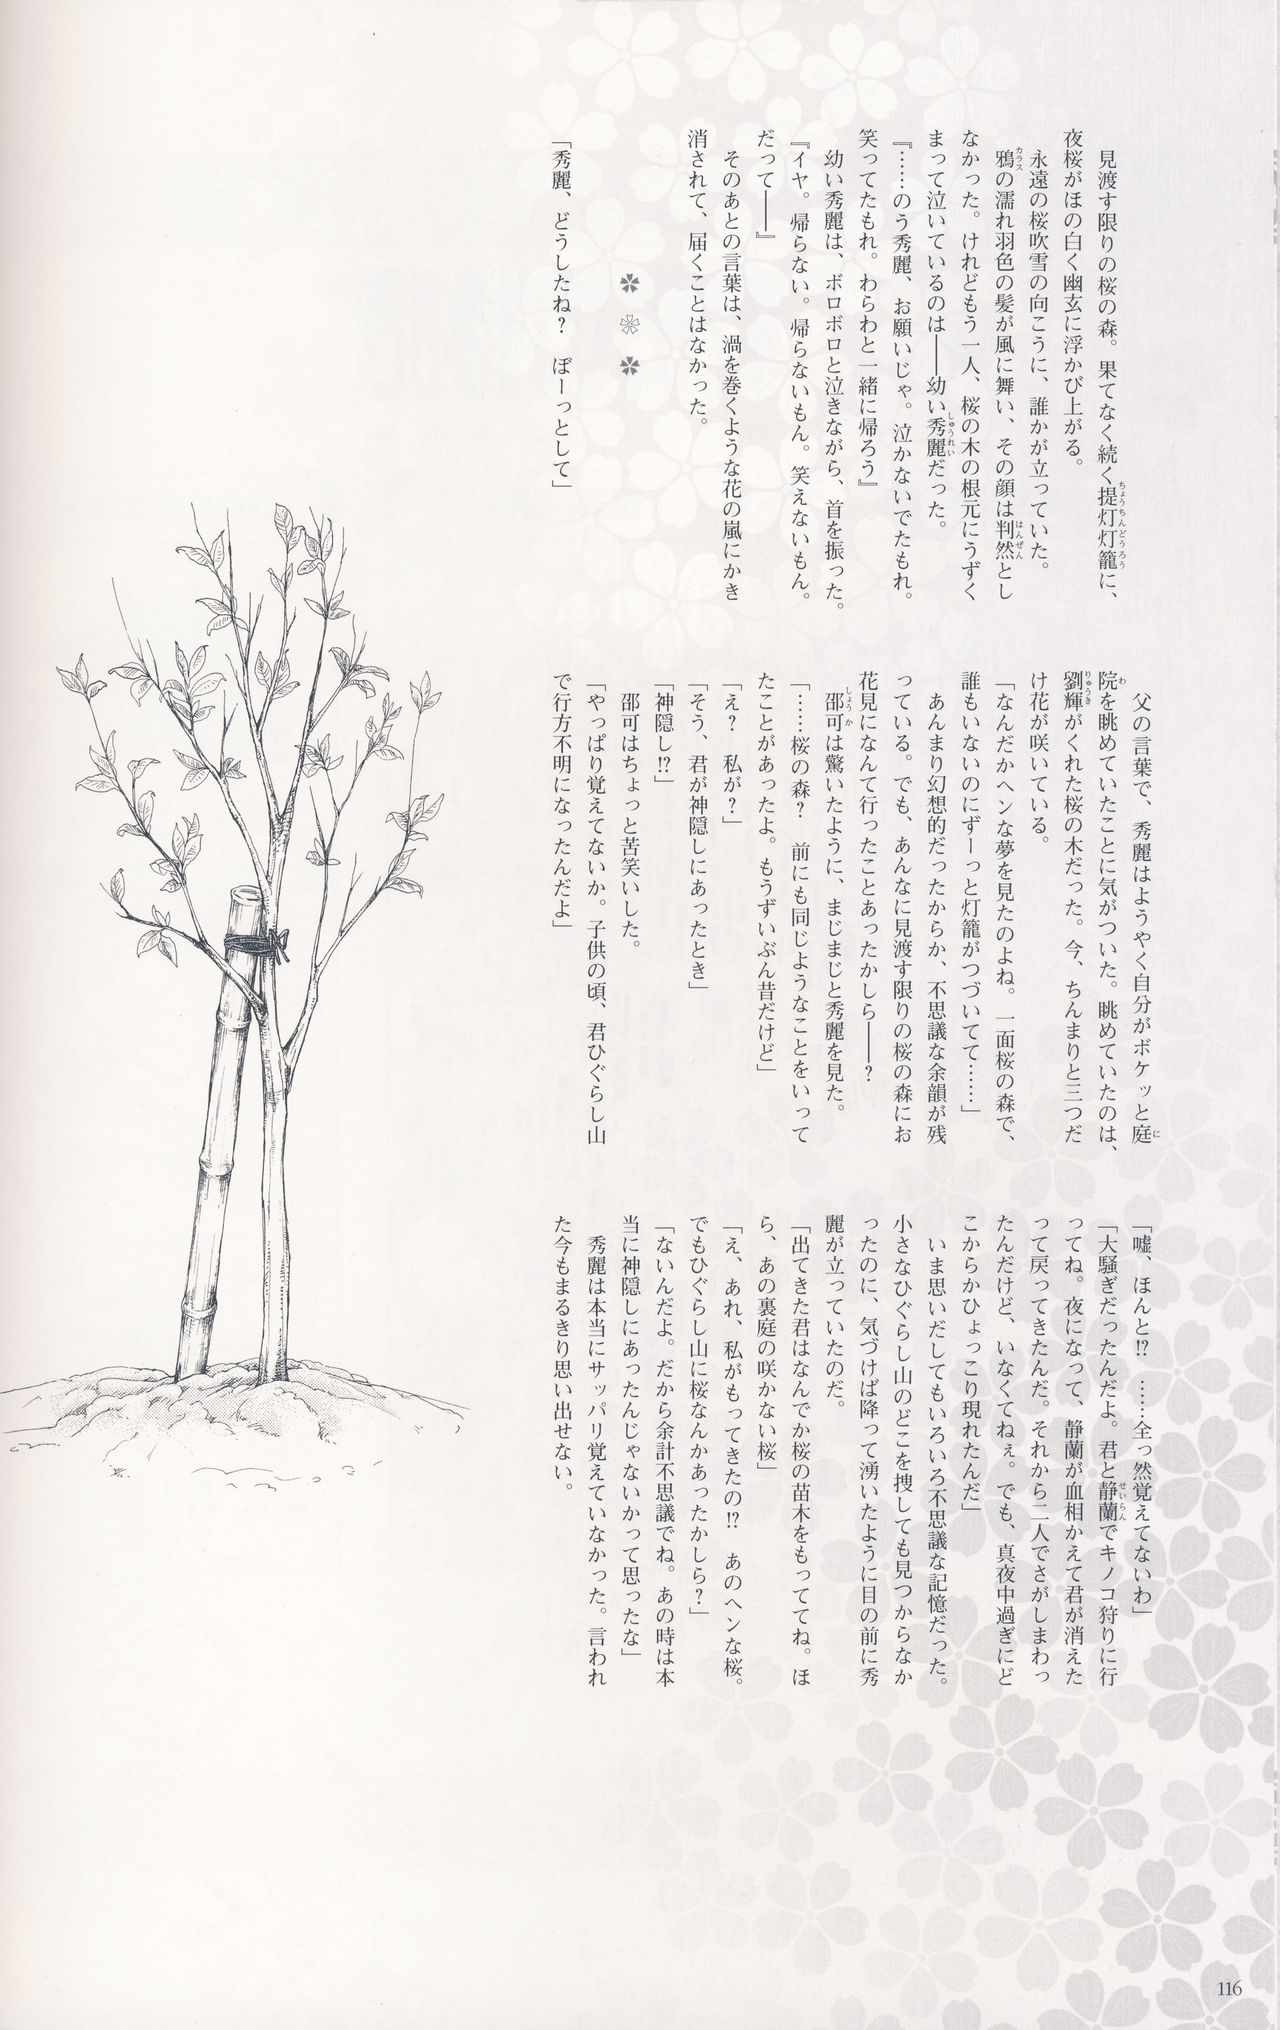 見渡す限りの桜の森。果てなく続く提灯灯籠に、
夜桜がほの白く幽玄に浮かび上がる。
永遠の桜吹雪の向こうに、誰かが立っていた。
鴉の濡れ羽色の髪が風に舞い、その顔は判然とし
なかった。けれどもう一人、桜の木の根元にうずく
まって泣いているのは――幼い秀麗だった。
『……のう秀麗、お願いじゃ。泣かないでたもれ。
笑ってたもれ。わらわと一緒に帰ろう』
幼い秀麗は、ボロボロと泣きながら、首を振った。
『イヤ。帰らない。帰らないもん。笑えないもん。
だって――』
そのあとの言葉は、渦を巻くような花の嵐にかき
消されて、届くことはなかった。
「秀麗、どうしたね？　ぼーっとして」
父の言葉で、秀麗はようやく自分がボケッと庭
院を眺めていたことに気がついた。眺めていたのは、
劉輝がくれた桜の木だった。今、ちんまりと三つだ
け花が咲いている。
「なんだかヘンな夢を見たのよね。一面桜の森で、
誰もいないのにずーっと灯籠がつづいてて……」
あんまり幻想的だったからか、不思議な余韻が残
っている。でも、あんなに見渡す限りの桜の森にお
花見になんて行ったことあったかしら――？
邵可は驚いたように、まじまじと秀麗を見た。
「……桜の森？　前にも同じようなことをいって
たことがあったよ。もうずいぶん昔だけど」
「え？　私が？」
「そう、君が神隠しにあったとき」
「神隠し!?」
邵可はちょっと苦笑いした。
「やっぱり覚えてないか。子供の頃、君ひぐらし山
で行方不明になったんだよ」
「嘘、ほんと!?　……全っ然覚えてないわ」
「大騒ぎだったんだよ。君と静蘭でキノコ狩りに行
ってね。夜になって、静蘭が血相かえて君が消えた
って戻ってきたんだ。それから二人でさがしまわっ
たんだけど、いなくてねぇ。でも、真夜中過ぎにど
こからかひょっこり現れたんだ」
いま思いだしてもいろいろ不思議な記憶だった。
小さなひぐらし山のどこを捜しても見つからなか
ったのに、気づけば降って湧いたように目の前に秀
麗が立っていたのだ。
「出てきた君はなんでか桜の苗木をもっててね。ほ
ら、あの裏庭の咲かない桜」
「え、あれ、私がもってきたの!?　あのヘンな桜。
でもひぐらし山に桜なんかあったかしら？」
「ないんだよ。だから余計不思議でね。あの時は本
当に神隠しにあったんじゃないかって思ったな」
秀麗は本当にサッパリ覚えていなかった。言われ
た今もまるきり思い出せない。
116